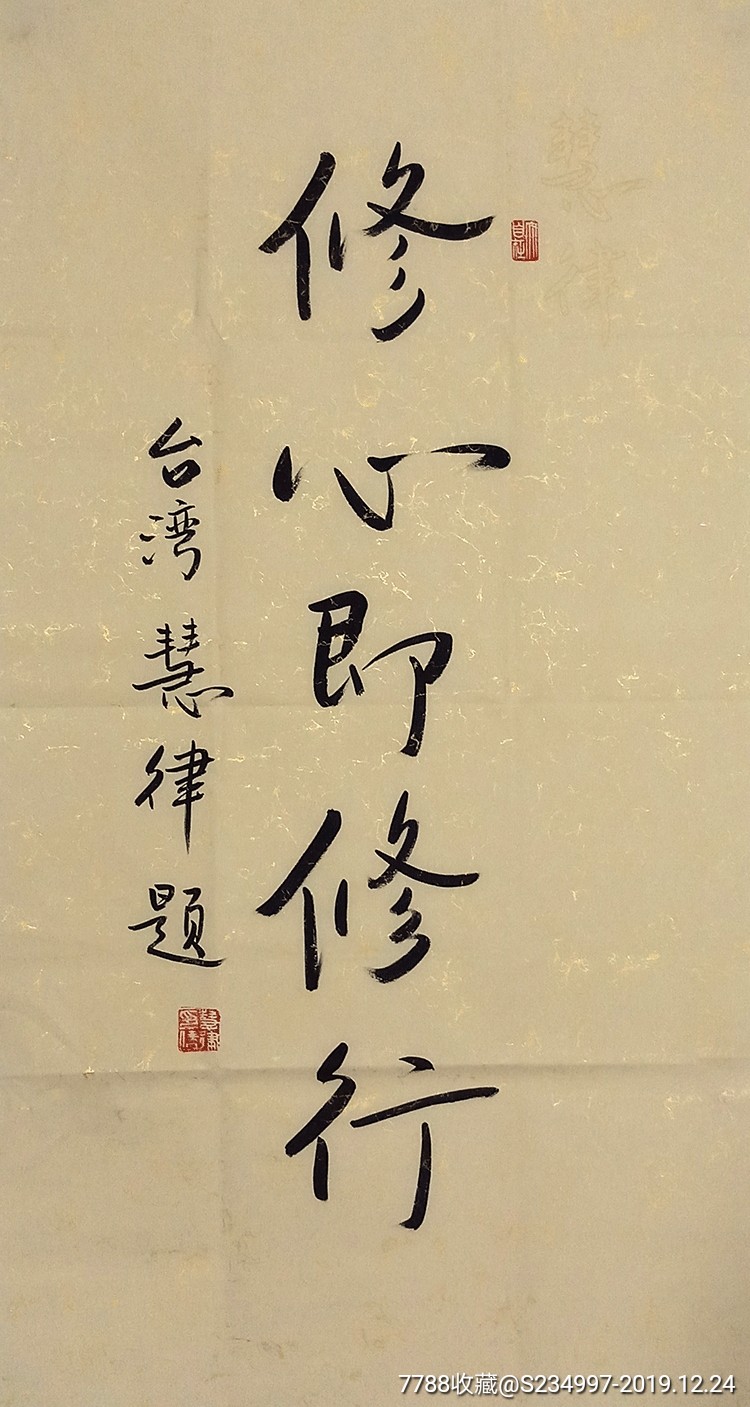 修心即修行
台湾慧律题
慧律
7788收藏@S234997-2019.12.24